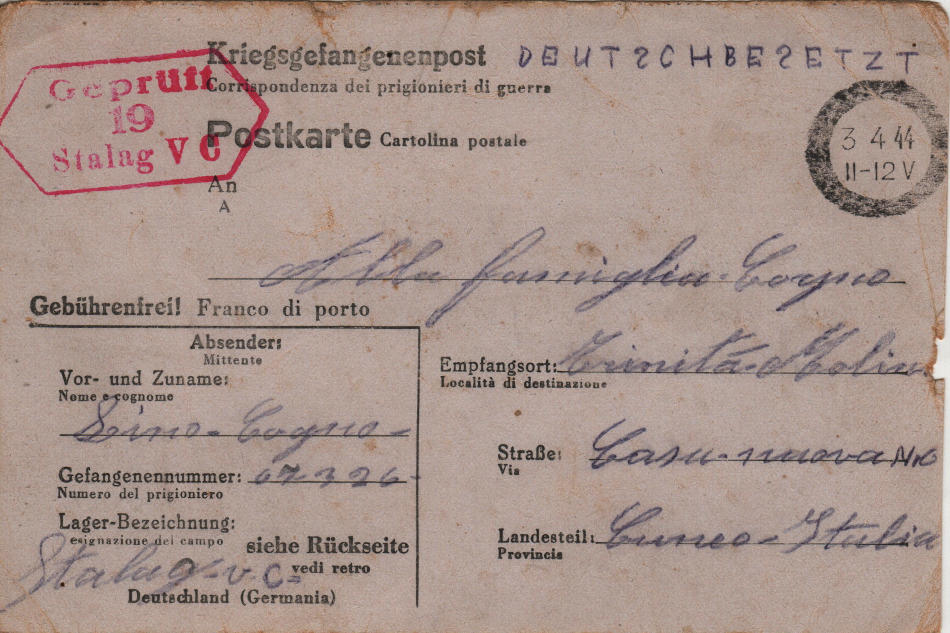 Kriegsgefangenenpost DEUTSCHBESETZT
Corrispondenza dei prigionieri di guerra
Geprüft
19
Stalag V C
Postkarte Cartolina postale
3 4 44
11-12 V
An
A
Alla famiglia Cogno
Gebührenfrei! Franco di porto
Absender:
Mittente
Vor- und Zuname:
Nome e cognome
Lino-Cogno-
Gefangenennummer: 67326-
Numero del prigioniero
Lager-Bezeichnung:
esignazione del campo
siehe Rückseite
vedi retro
Stalag-V.C=
Deutschland (Germania)
Empfangsort: Trinitá-Molin
Località di destinazione
Straße: Casa-nuova
Via
Landesteil: Cuneo-Italia
Provincia